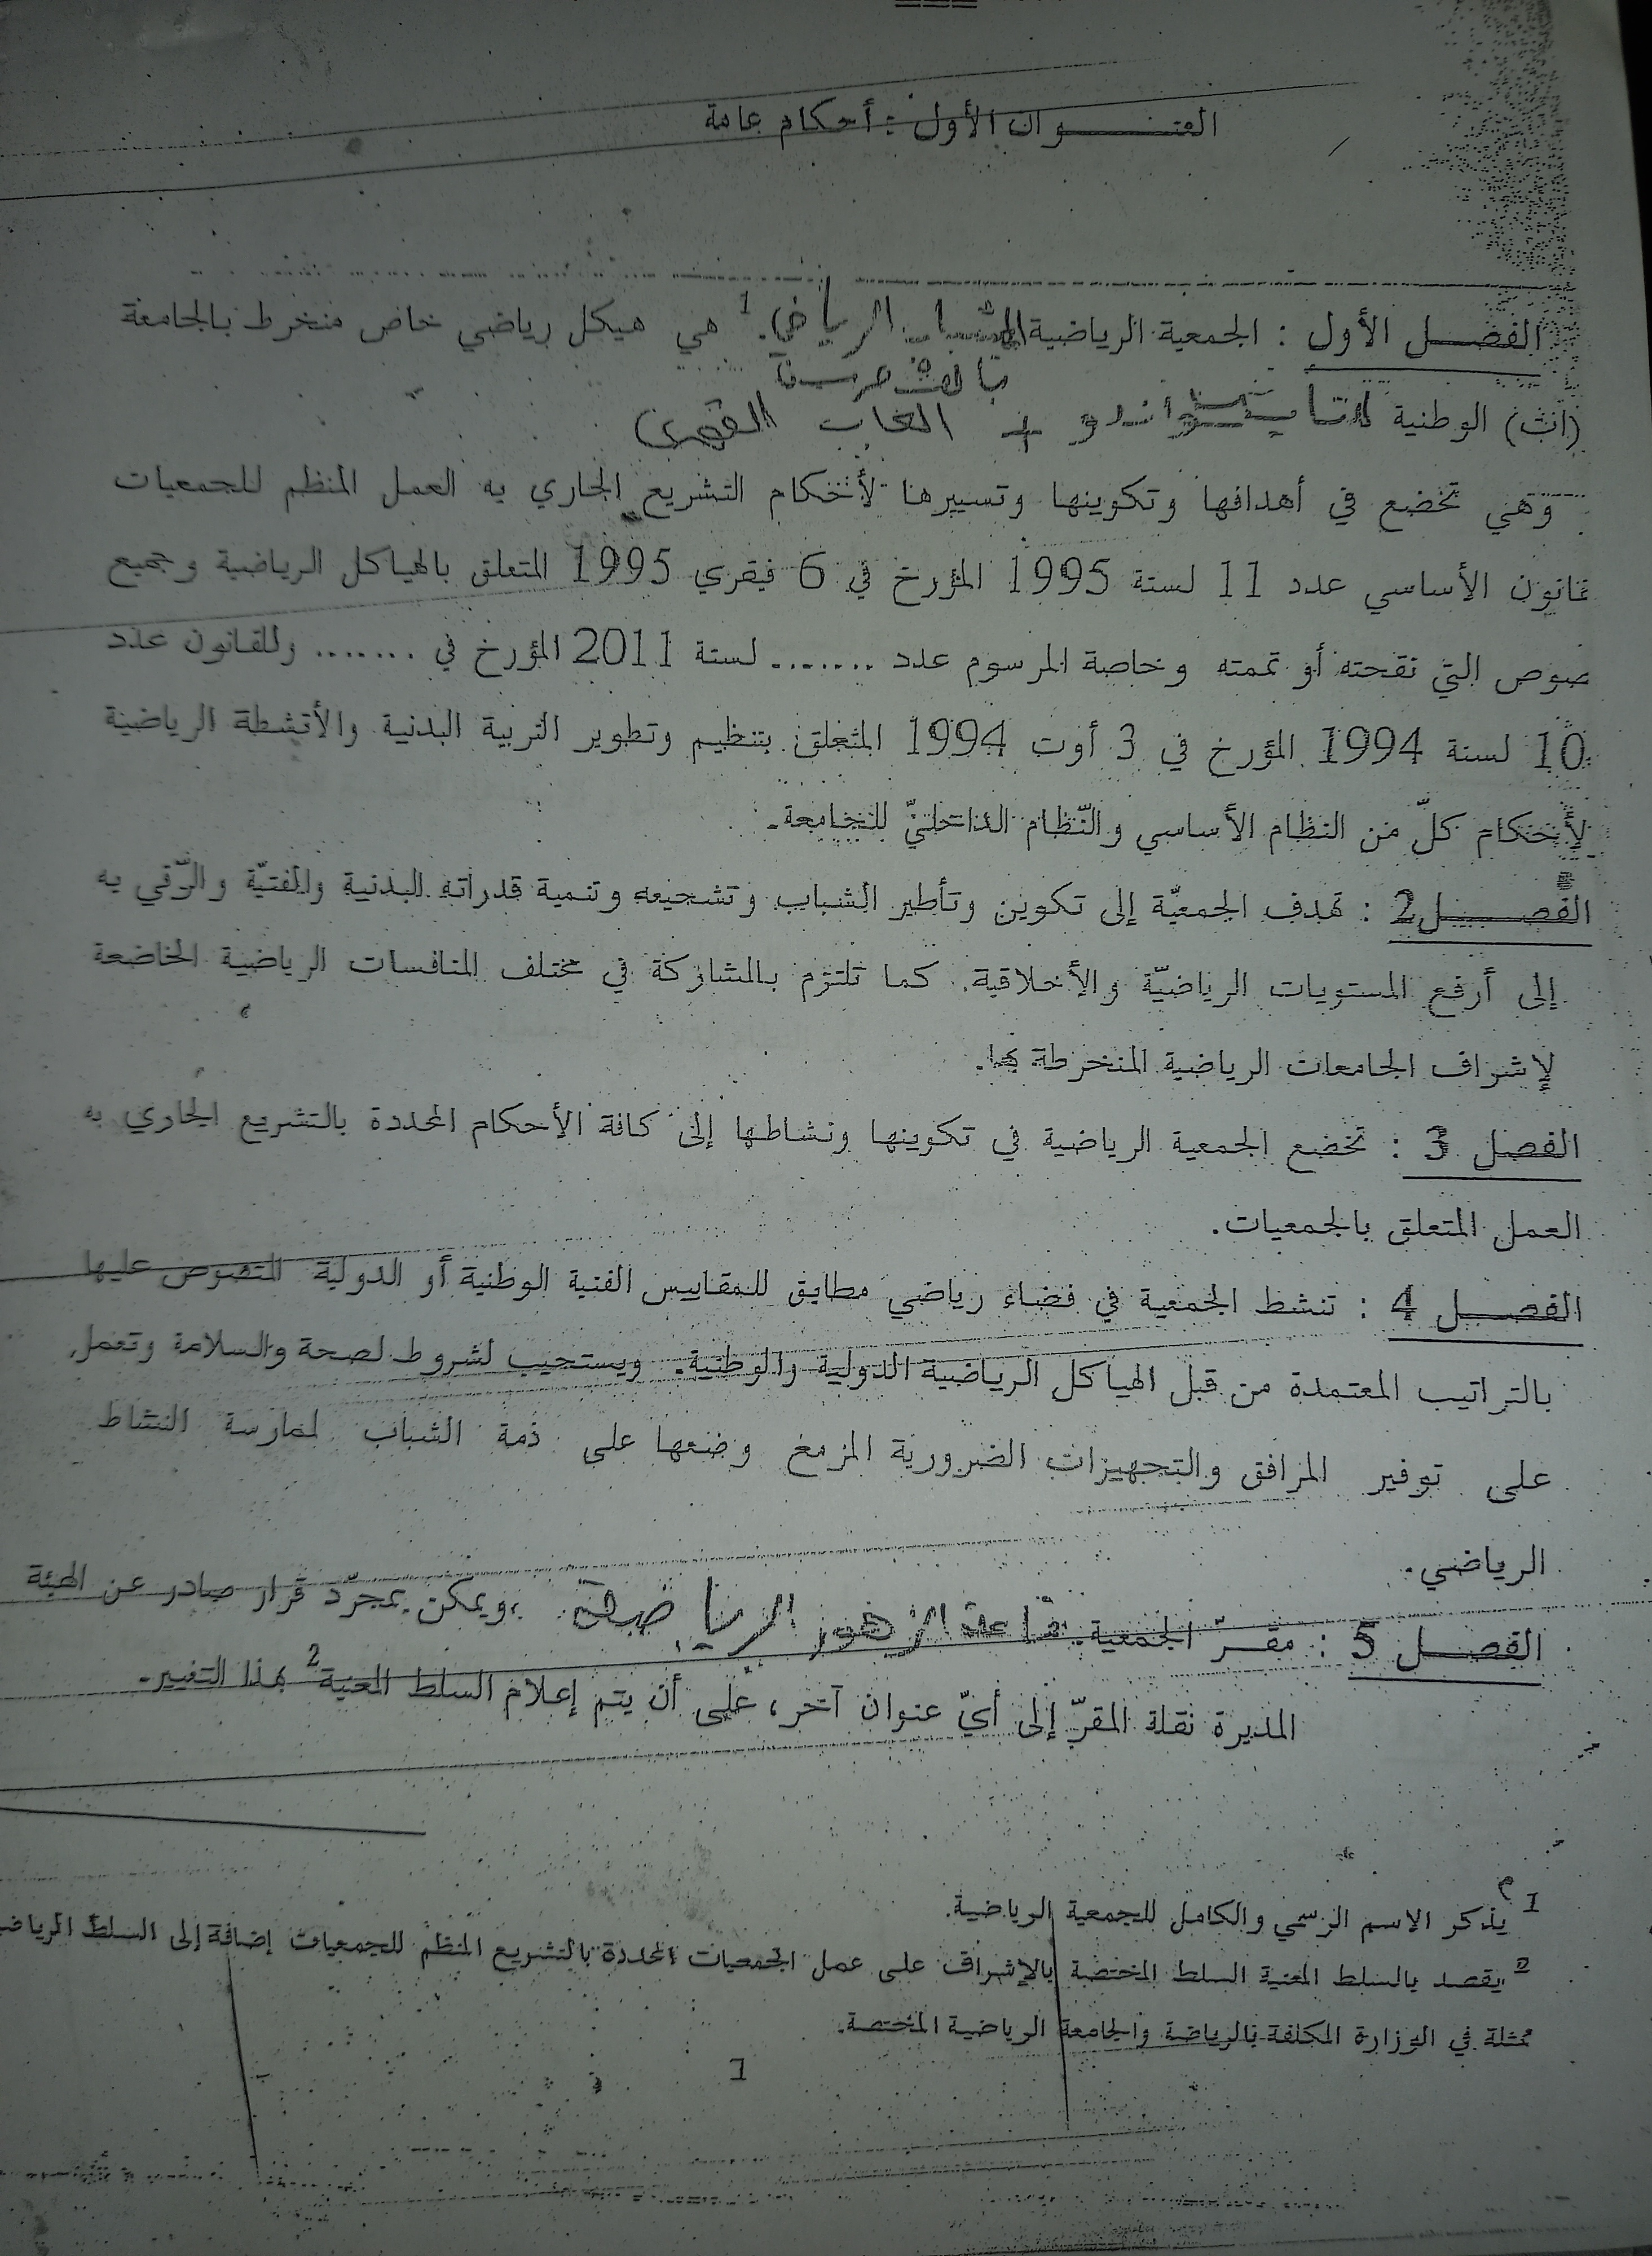 العنـــوان الأول : أحكام عامة
الفصـل الأول : الجمعية الرياضية الشباب الرياضي 1 هي هيكل رياضي خاص منخرط بالجامعة
(ات) الوطنية للتايكواندو + العاب القوى
وهي تخضع في أهدافها وتكوينها وتسييرها لأحكام التشريع الجاري به العمل المنظم للجمعيات
قانون الأساسي عدد 11 لسنة 1995 المؤرخ في 6 فيفري 1995 المتعلق بالهياكل الرياضية وجميع
صوص التي نقحته أو تممته وخاصة المرسوم عدد ........ لسنة 2011 المؤرخ في ........ وللقانون عدد
10 لسنة 1994 المؤرخ في 3 أوت 1994 المتعلق بتنظيم وتطوير التربية البدنية والأنشطة الرياضية
لأحكام كلّ من النظام الأساسي والنّظام الداخليّ للجامعة.
الفصــل 2 : تهدف الجمعيّة إلى تكوين وتأطير الشباب وتشجيعه وتنمية قدراته البدنية والفنيّة والرّقي به
إلى أرفع المستويات الرياضيّة والأخلاقية. كما تلتزم بالمشاركة في مختلف المنافسات الرياضية الخاضعة
لإشراف الجامعات الرياضية المنخرطة بها.
الفصل 3 : تخضع الجمعية الرياضية في تكوينها ونشاطها إلى كافة الأحكام المحددة بالتشريع الجاري به
العمل المتعلق بالجمعيات.
الفصــل 4 : تنشط الجمعية في فضاء رياضي مطابق للمقاييس الفنية الوطنية أو الدولية المنصوص عليها
بالتراتيب المعتمدة من قبل الهياكل الرياضية الدولية والوطنية. ويستجيب لشروط لصحة والسلامة وتعمل
على توفير المرافق والتجهيزات الضرورية المزمع وضعها على ذمة الشباب لممارسة النشاط
الرياضي.
الفصــل 5 : مقـرّ الجمعية قاعة الزهور الرياضية ،ويمكن بمجرّد قرار صادر عن الهيئة
المديرة نقلة المقرّ إلى أيّ عنوان آخر، على أن يتم إعلام السلط المعنية 2 بهذا التغيير.
1 يذكر الاسم الرسمي والكامل للجمعية الرياضية.
2 يقصد بالسلط المعنية السلط المختصة بالإشراف على عمل الجمعيات المحددة بالتشريع المنظم للجمعيات إضافة إلى السلط الرياض
ممثلة في الوزارة المكلفة بالرياضة والجامعة الرياضية المختصة.
1